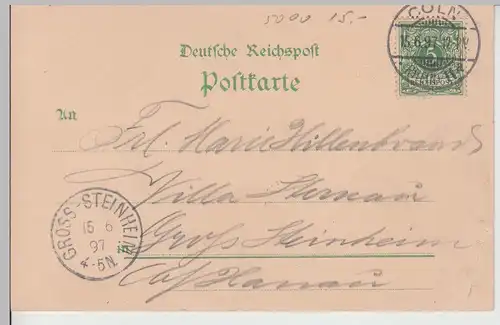 5000 15.-
CÖLN
15.6.97
5
Deutsche Reichspost
Postkarte
An
Frl. Marie Hillenbrand
Villa Sternau
in
Gross Steinheim
b/Hanau
GROSS-STEINHEIM
15 6
97
4-5N.